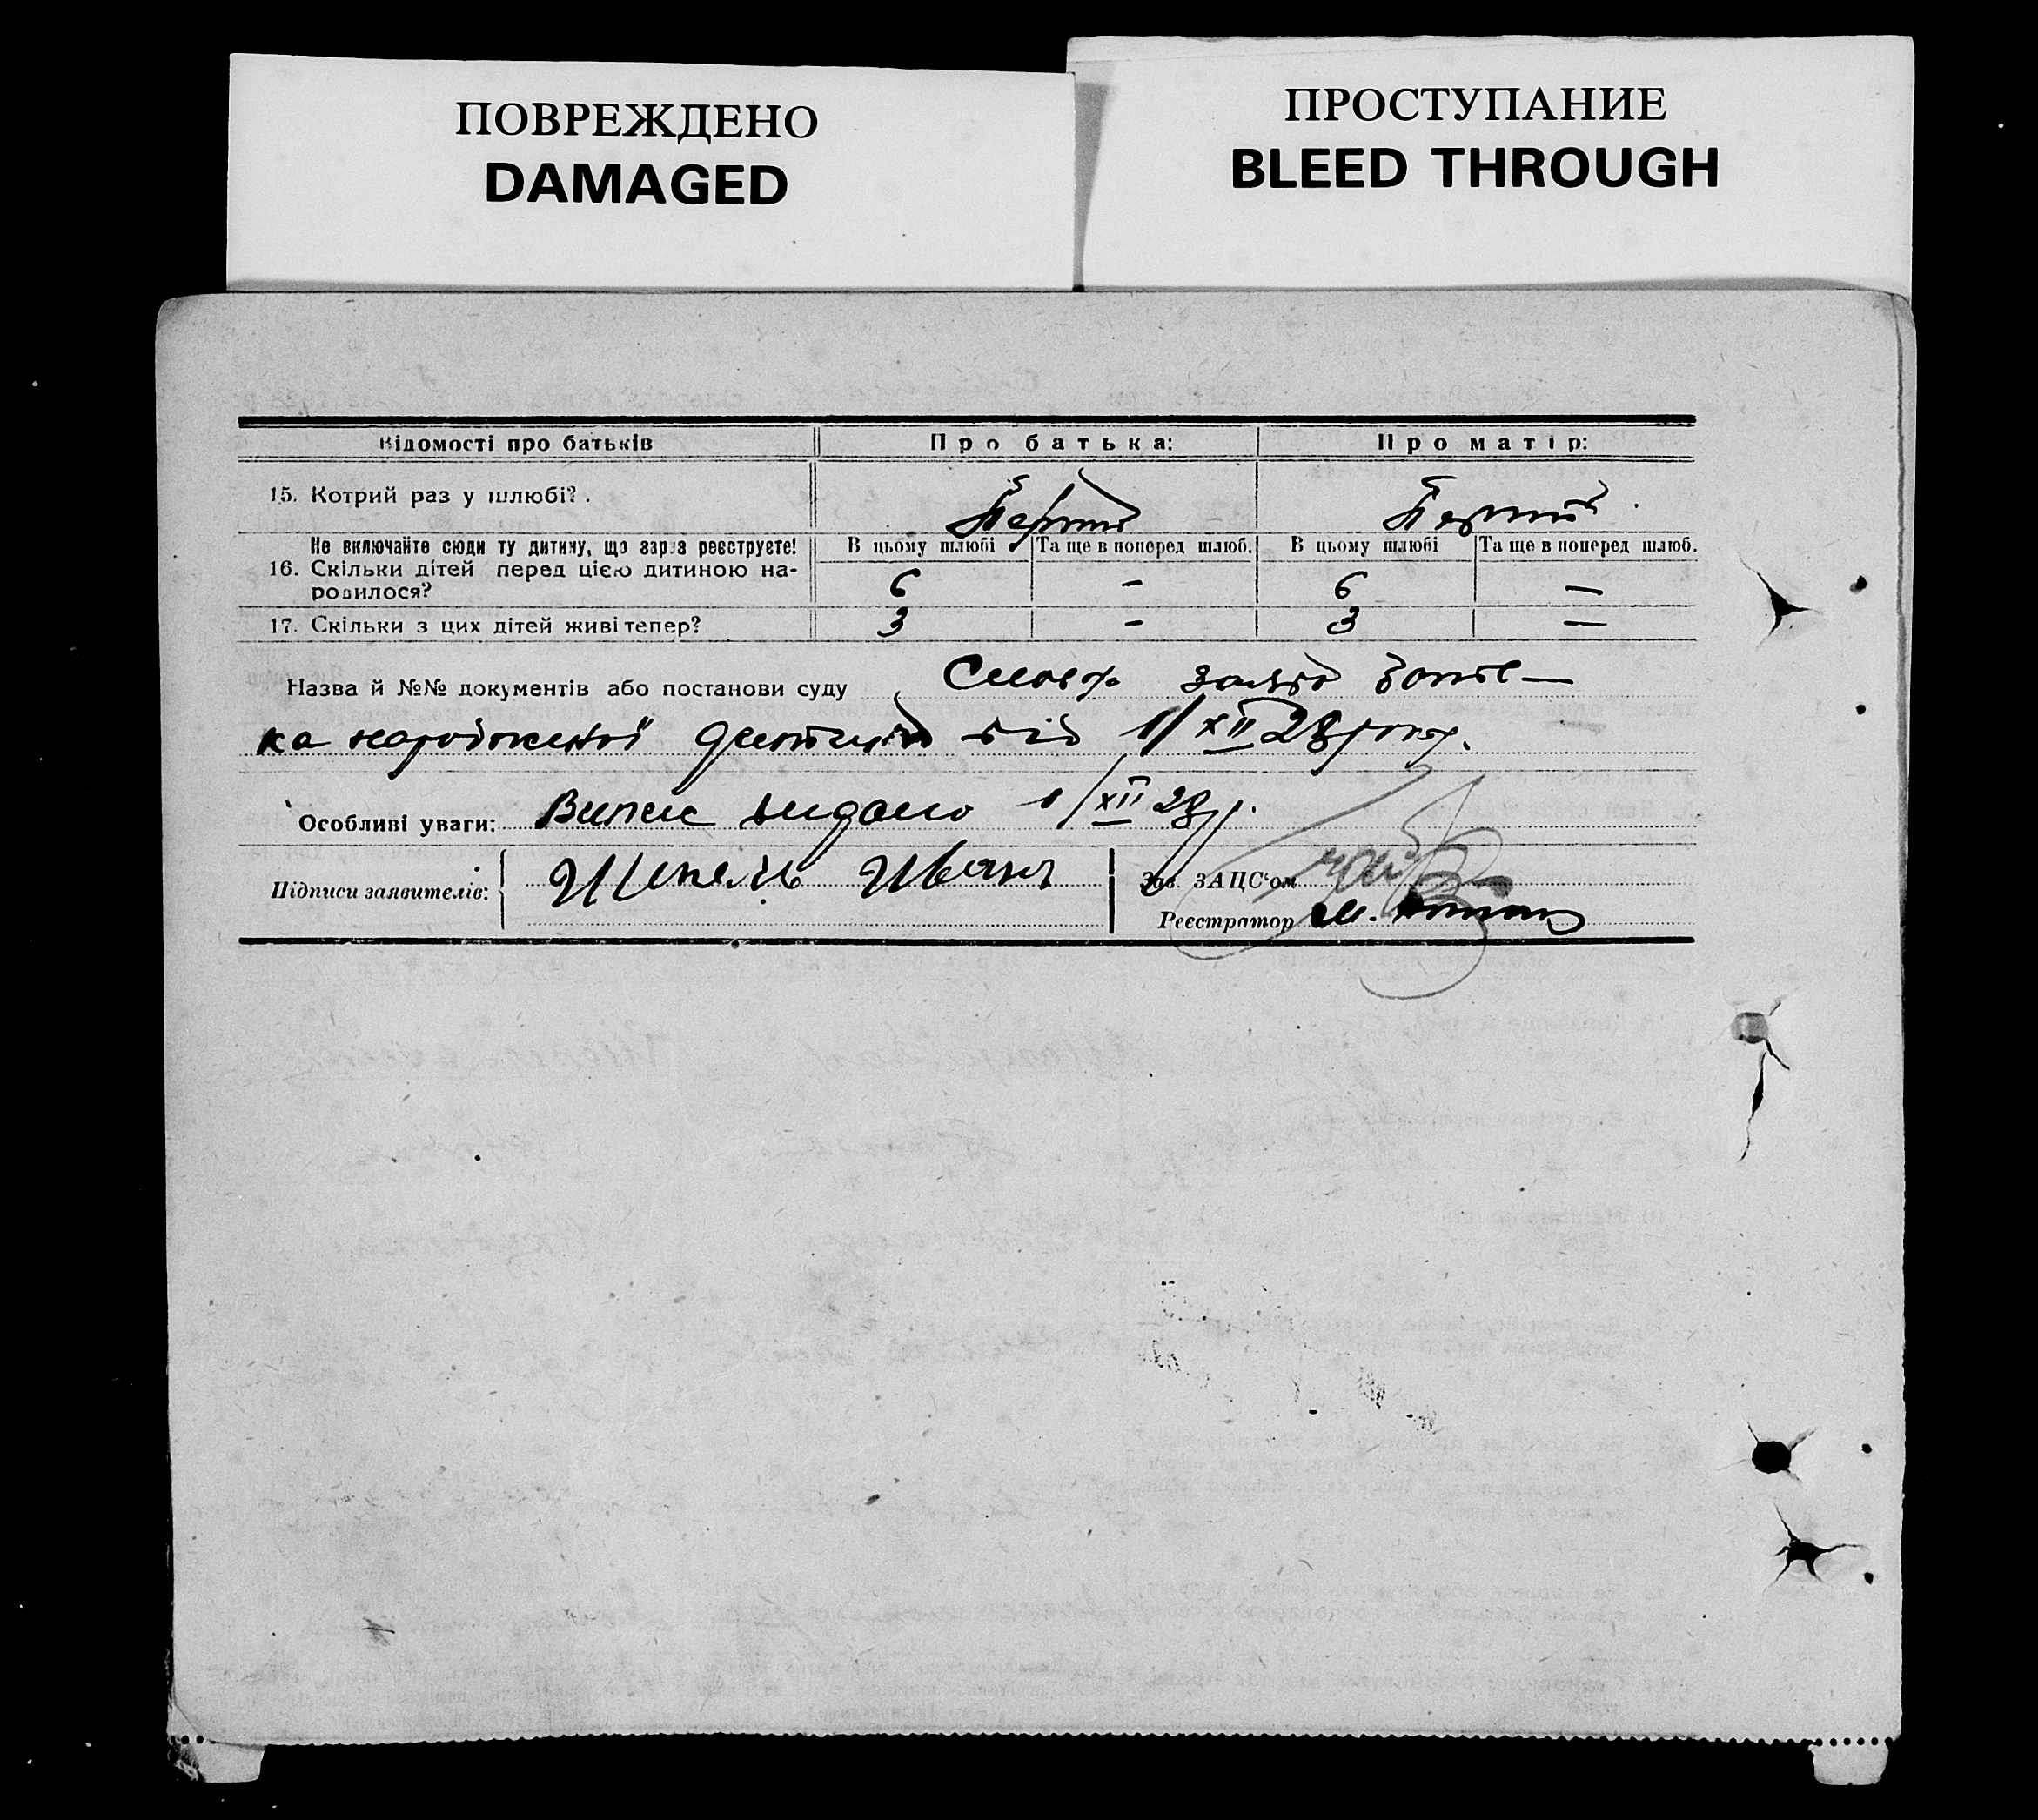 ПОВРЕЖДЕНО
DAMAGED
ПРОСТУПАНИЕ
BLEED THROUGH
Відомості про батьків Про батька: Про матір:
15. Котрий раз у шлюбі? . Перший Перший
Не включайте сюди ту дитину, що зараз реєструєте! В цьому шлюбі Та ще в поперед шлюб. В цьому шлюбі Та ще в поперед шлюб.
16. Скільки дітей перед цією дитиною на- 6 – 6 —
родилося?
17. Скільки з цих дітей живі тепер? 3 – 3 —
Назва й №№ документів або постанови суду Слова заява
ка народженої дитини від 1/XII 28 року.
Особливі уваги: Випис видано 1/XII 28 р.
Підписи заявителів: Иван Зав. ЗАЦС'ом
Реєстратор М.